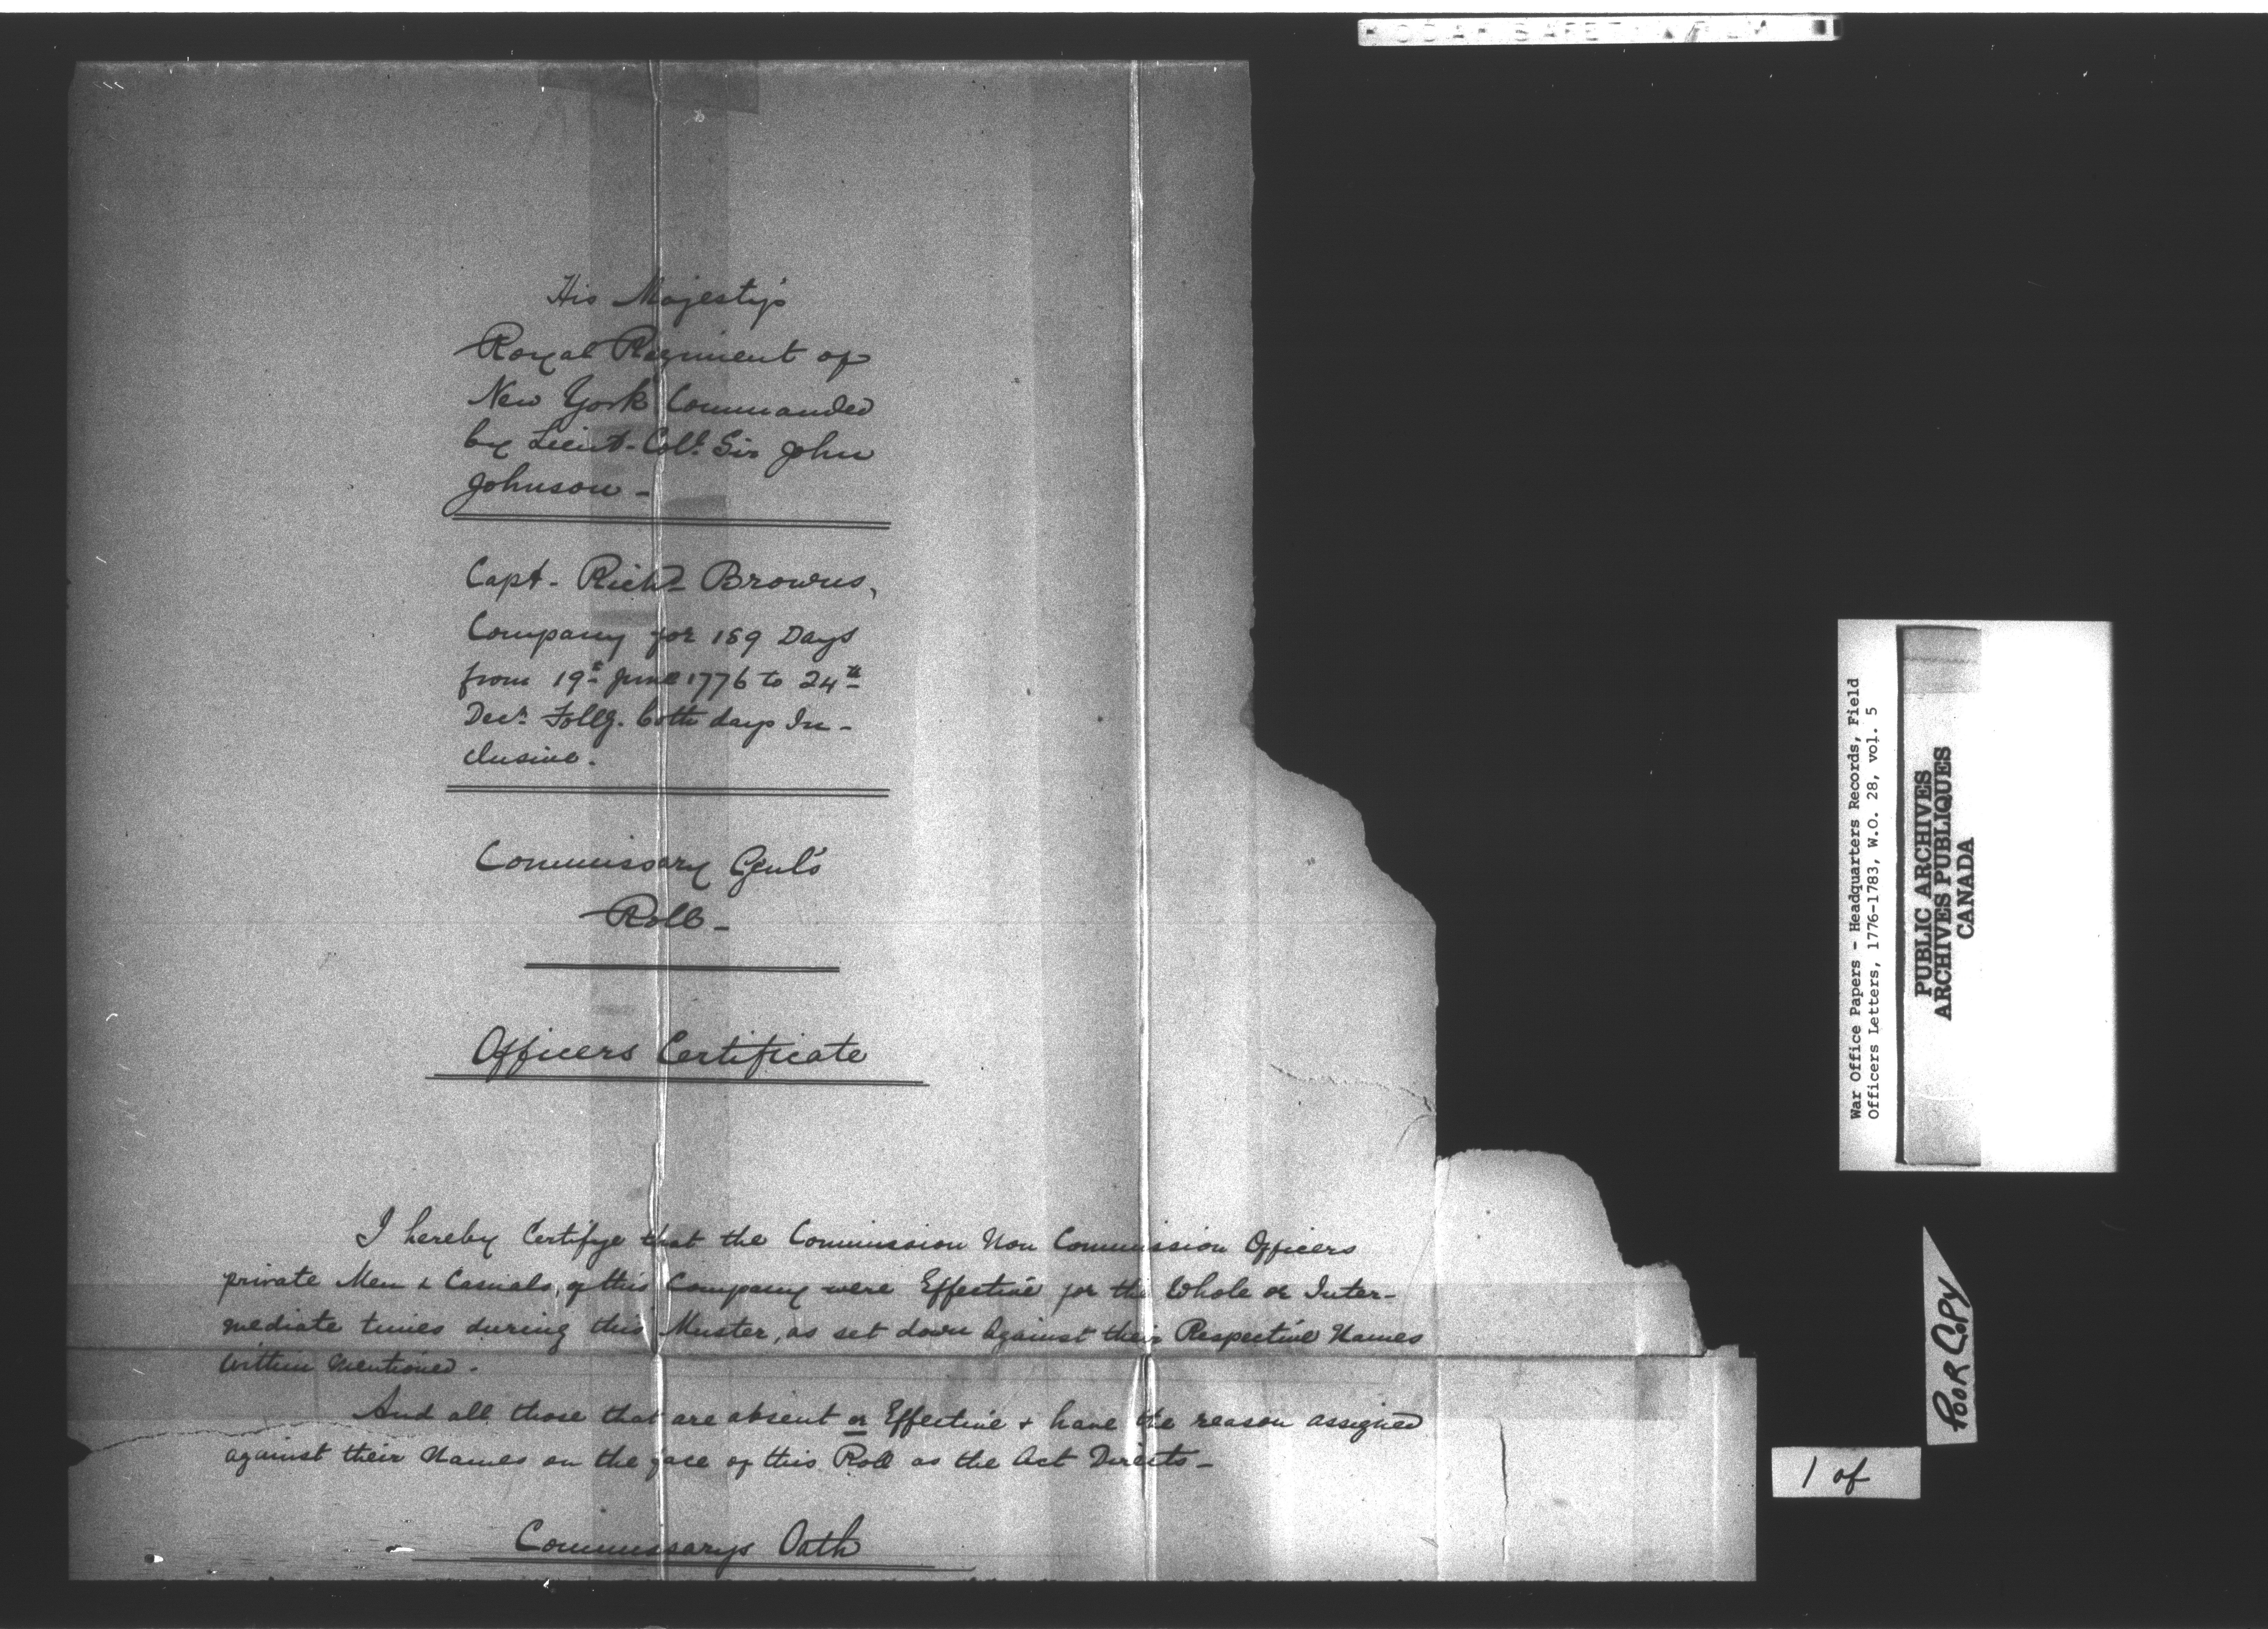 His Majesty's
Royal Regiment of
New York Commanded
by Lieut-Coll. Sir John
Johnson -
Capt - Richd Browns,
Company for 189 Days
from 19th June 1776 to 24th
Decr. Follg. both days In-
clusive.
Commissary Genl's
Roll -
Officers Certificate
I hereby Certifye that the Commission Non Commission Officers
private Men & Casuals, of this Company were Effective for the Whole or Inter-
mediate times during this Muster, as set down against their Respective Names
within mentioned.
And all those that are absent or Effective & have the reason assigned
against their Names on the face of this Roll as the Act Directs -
Commissarys Oath
War Office Papers - Headquarters Records, Field
Officers Letters, 1776-1783, W.O. 28, vol. 5
PUBLIC ARCHIVES
ARCHIVES PUBLIQUES
CANADA
POOR COPY
1 of